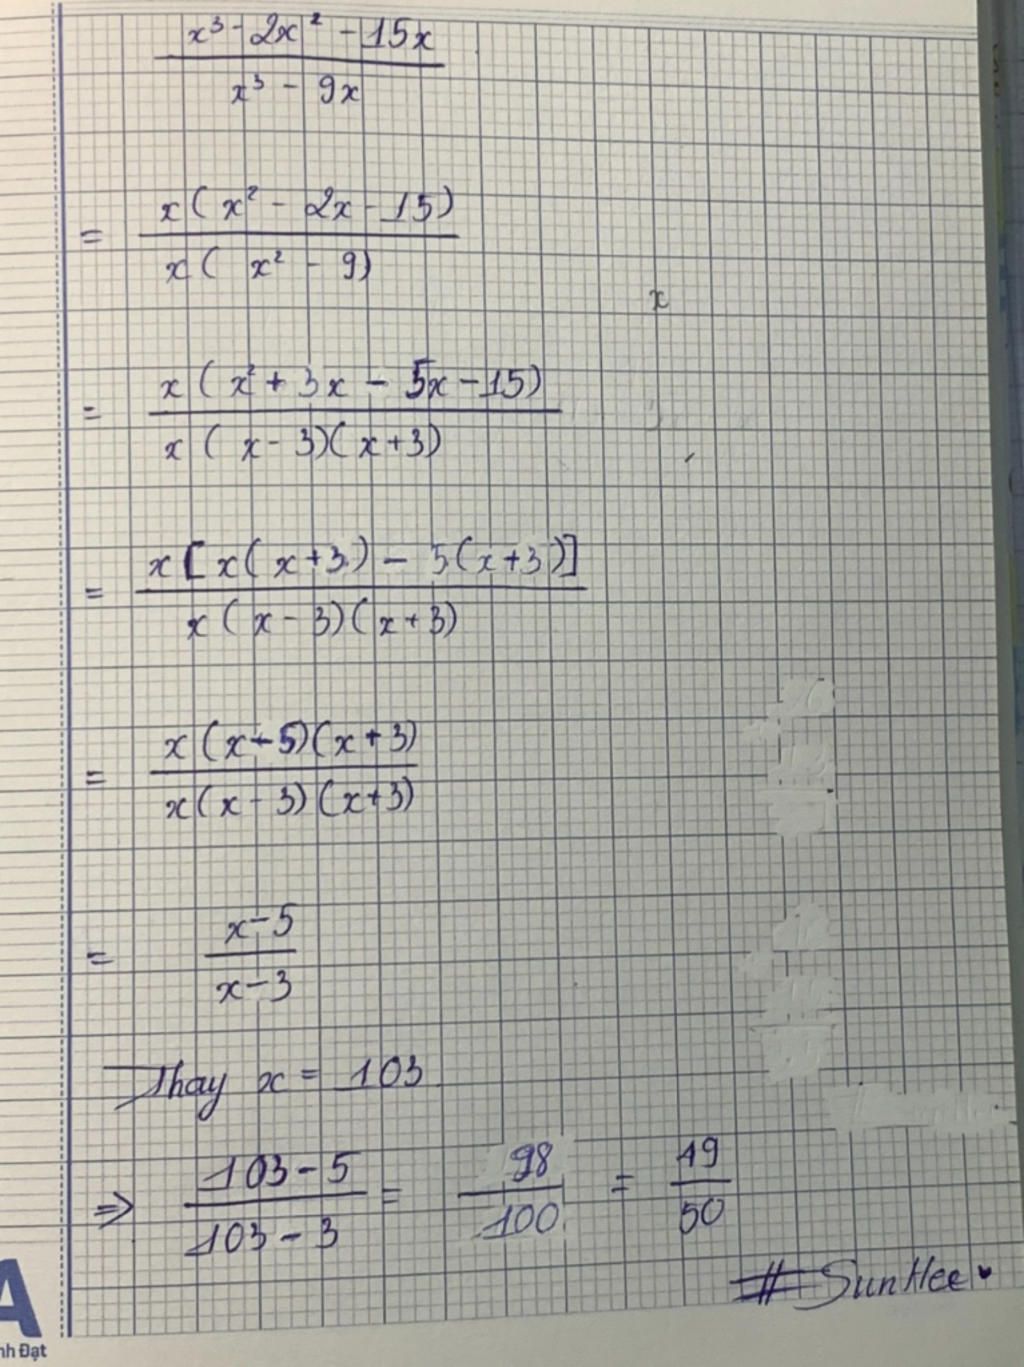 x³ - 2x² - 15x
x³ - 9x
= x(x² - 2x - 15)
x(x² - 9)
x
= x(x² + 3x - 5x - 15)
x(x - 3)(x + 3)
= x[x(x + 3) - 5(x + 3)]
x(x - 3)(x + 3)
= x(x - 5)(x + 3)
x(x - 3)(x + 3)
= x - 5
x - 3
Thay x = 103
=> 103 - 5 = 98 = 49
103 - 3 100 50
# SunHee
A
nh Đạt